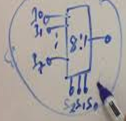 I0
I1
I7
8:1
0
S2 S1 S0